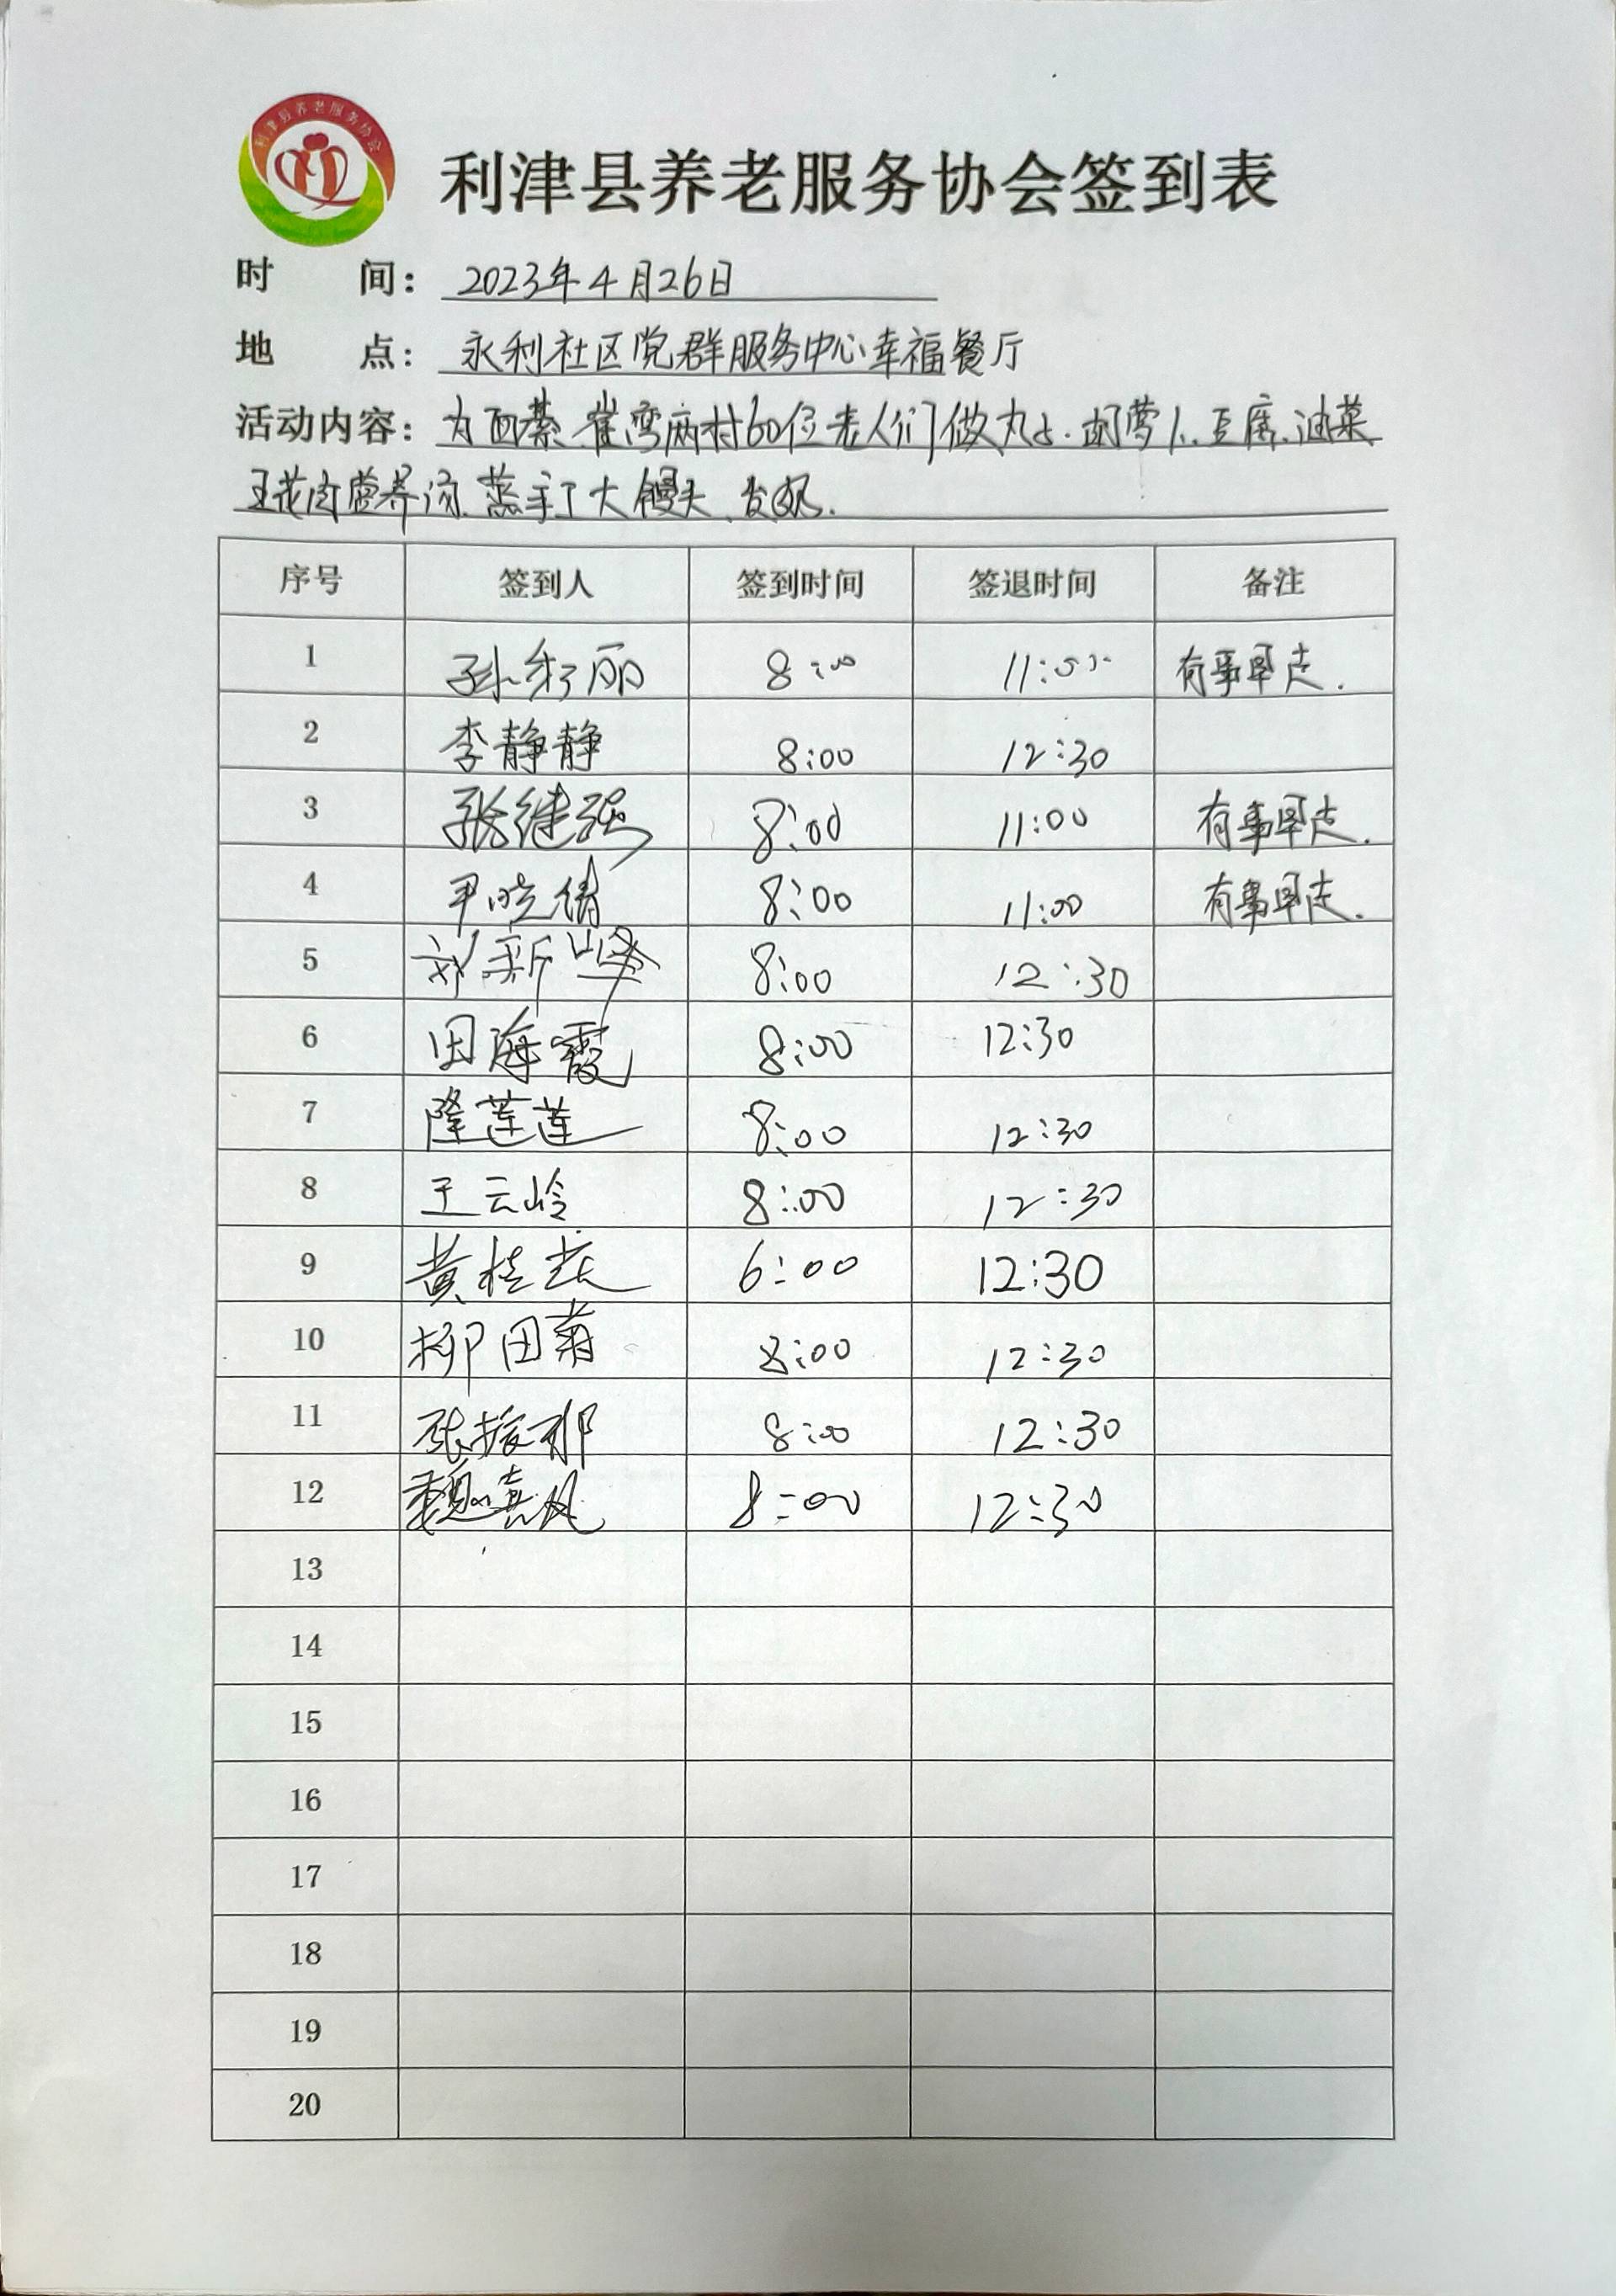 利津县养老服务协会
利津县养老服务协会签到表
时 间: 2023年4月26日
地 点: 永利社区党群服务中心幸福餐厅
活动内容: 为西綦、崔湾两村60位老人们做丸子、胡萝卜、豆腐、油菜
五花肉营养汤、蒸手工大馒头、发放.
序号 签到人 签到时间 签退时间 备注
1 孙红丽 8:00 11:00 有事早走.
2 李静静 8:00 12:30
3 张继强 8:00 11:00 有事早走.
4 尹晓倩 8:00 11:00 有事早走.
5 刘新峰 8:00 12:30
6 田海霞 8:00 12:30
7 隆莲莲 8:00 12:30
8 王云岭 8:00 12:30
9 黄桂花 6:00 12:30
10 柳田菊 8:00 12:30
11 张振 8:00 12:30
12 魏喜凤 8:00 12:30
13
14
15
16
17
18
19
20